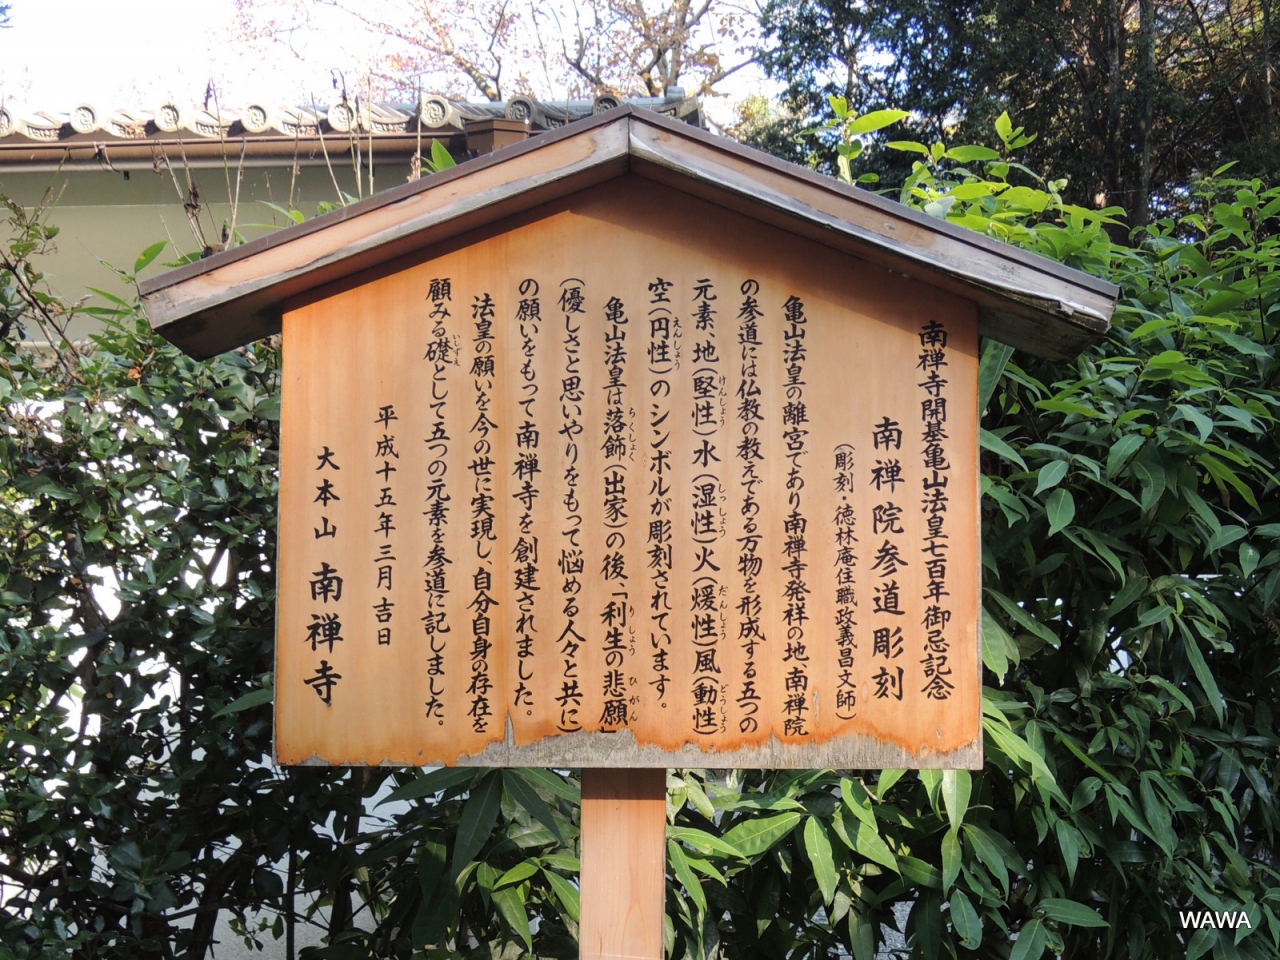 南禅寺開基亀山法皇七百年御忌記念
南禅院参道彫刻
(彫刻・徳林庵住職政義昌文師)
亀山法皇の離宮であり南禅寺発祥の地南禅院
の参道には仏教の教えである万物を形成する五つの
元素、地(堅性)水(湿性)火(煖性)風(動性)
けんしょう しっしょう だんしょう どうしょう
空(円性)のシンボルが彫刻されています。
えんしょう
亀山法皇は落飾(出家)の後、「利生の悲願」
らくしょく りしょう ひがん
(優しさと思いやりをもって悩める人々と共に)
の願いをもって南禅寺を創建されました。
法皇の願いを今の世に実現し、自分自身の存在を
顧みる礎として五つの元素を参道に記しました。
いしずえ
平成十五年三月吉日
大本山 南禅寺
WAWA